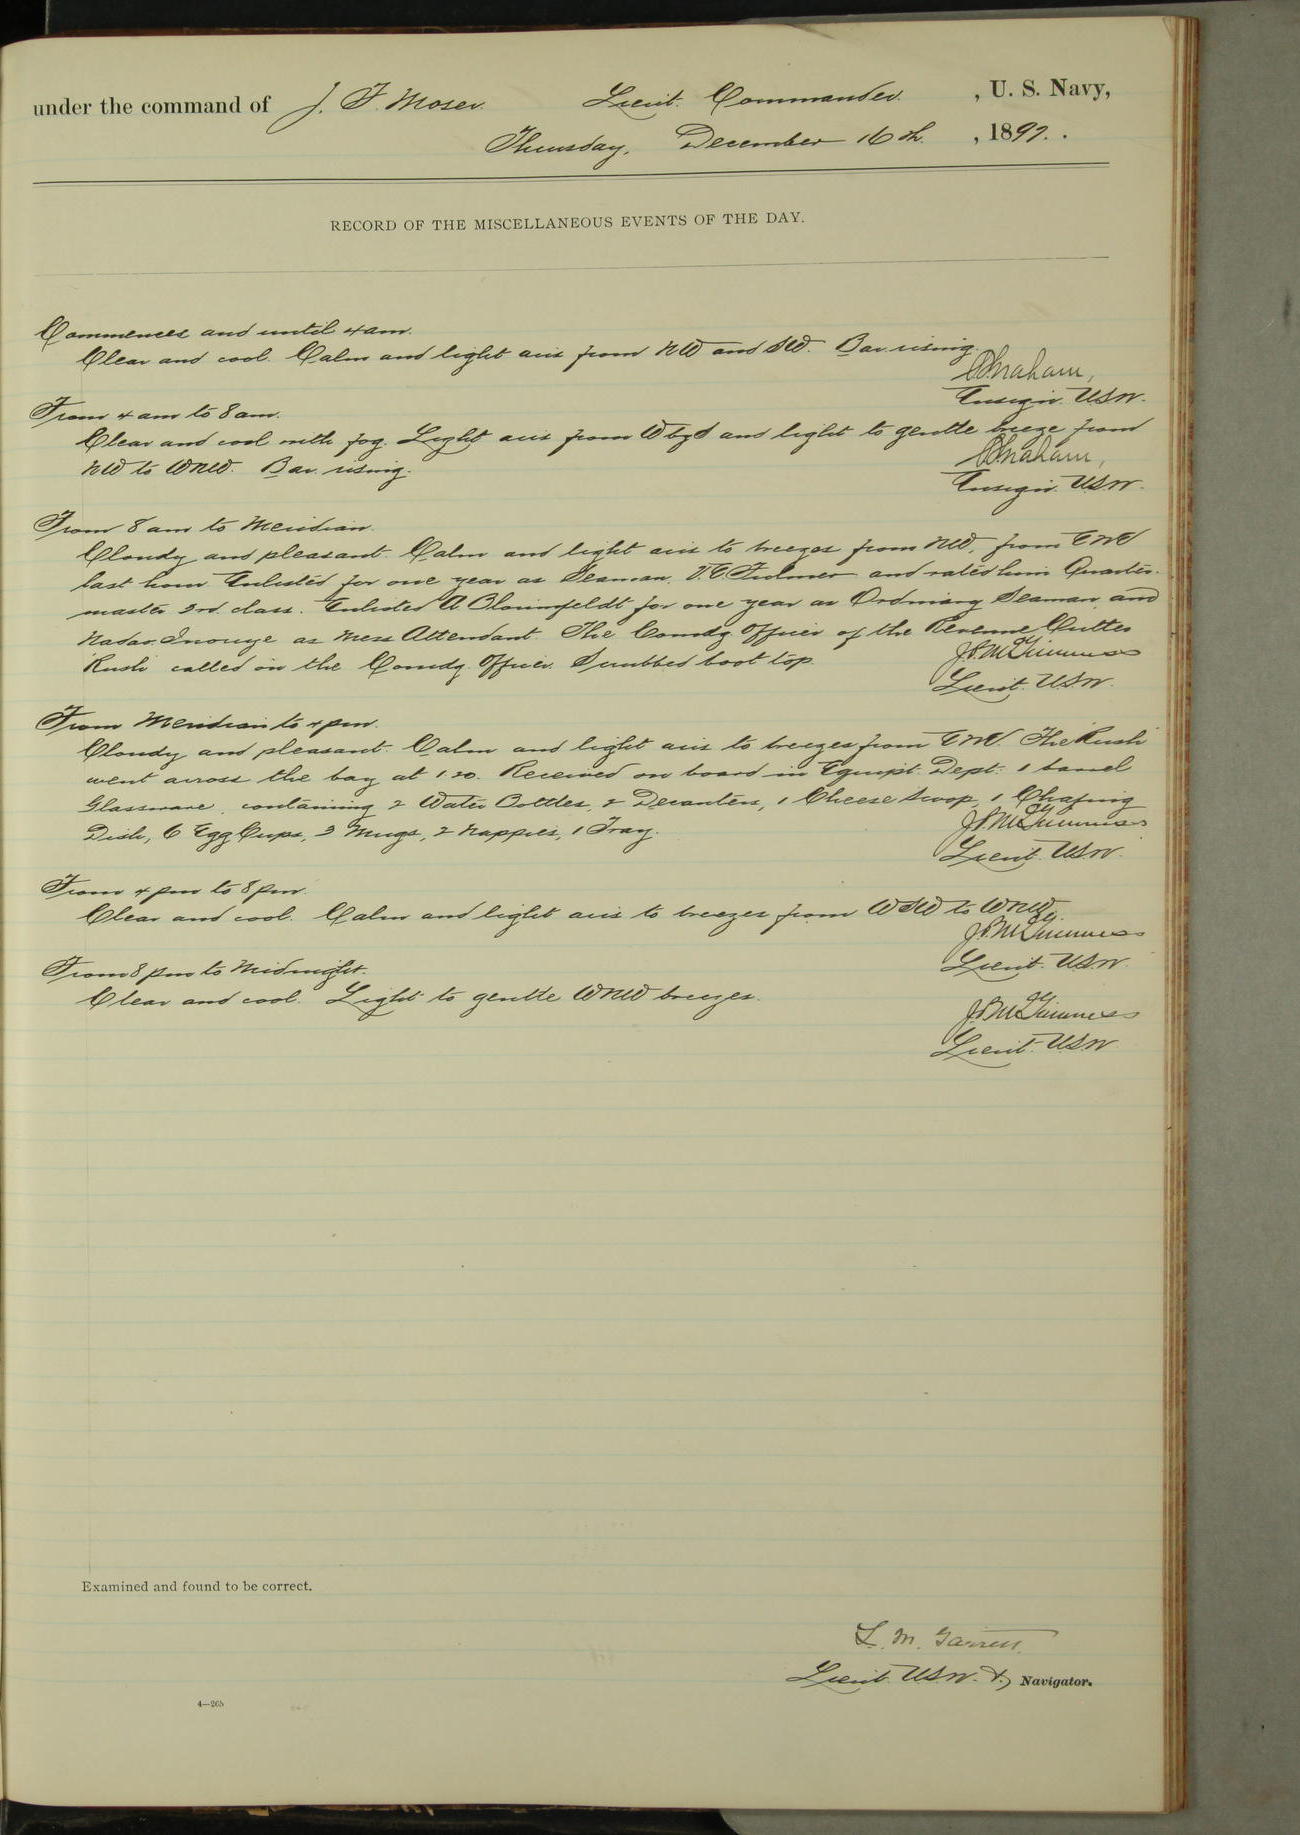 under the command of J. F. Moser. Lieut. Commander. , U. S. Navy,
Thursday, December 16th. , 1897. .
RECORD OF THE MISCELLANEOUS EVENTS OF THE DAY.
Commences and until 4 am.
Clear and cool. Calm and light airs from NW and SW. Bar. rising.
Ensign. USN.
From 4 am to 8 am.
Clear and cool with fog. Light airs from W by S and light to gentle breeze from
NW to WNW. Bar. rising.
Ensign. USN.
From 8 am to Meridian.
Cloudy and pleasant. Calm and light airs to breezes from NW, from ENE
last hour. Enlisted for one year as Seaman, V. E. Fulmer and rated him Quarter-
master 3rd. class. Enlisted A. Bloumfeldt for one year as Ordinary Seaman and
Inouye as Mess Attendant. The Comdg. Officer of the Revenue Cutter
Rush called on the Comdg. Officer. Scrubbed boot top.
J. B. McGuinness
Lieut. USN.
From Meridian to 4 pm.
Cloudy and pleasant. Calm and light airs to breezes from ENE. The Rush
went across the bay at 1.20. Received on board in Equipt. Dept: 1 barrel
Glassware containing 2 Water Bottles, 2 Decanters, 1 Cheese Scoop, 1 Chafing
Dish, 6 Egg Cups, 3 Mugs, 2 Nappies, 1 Tray.
J. B. McGuinness
Lieut. USN.
From 4 pm to 8 pm.
Clear and cool. Calm and light airs to breezes from WSW to WNW.
J. B. McGuinness
Lieut. USN.
From 8 pm to Midnight.
Clear and cool. Light to gentle WNW breezes.
J. B. McGuinness
Lieut. USN
Examined and found to be correct.
L. M. Garrett.
Lieut. USN. &, Navigator.
4—265